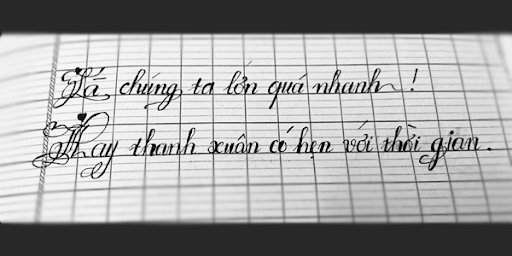 Là chúng ta lớn quá nhanh !
Hay thanh xuân có hẹn với thời gian .